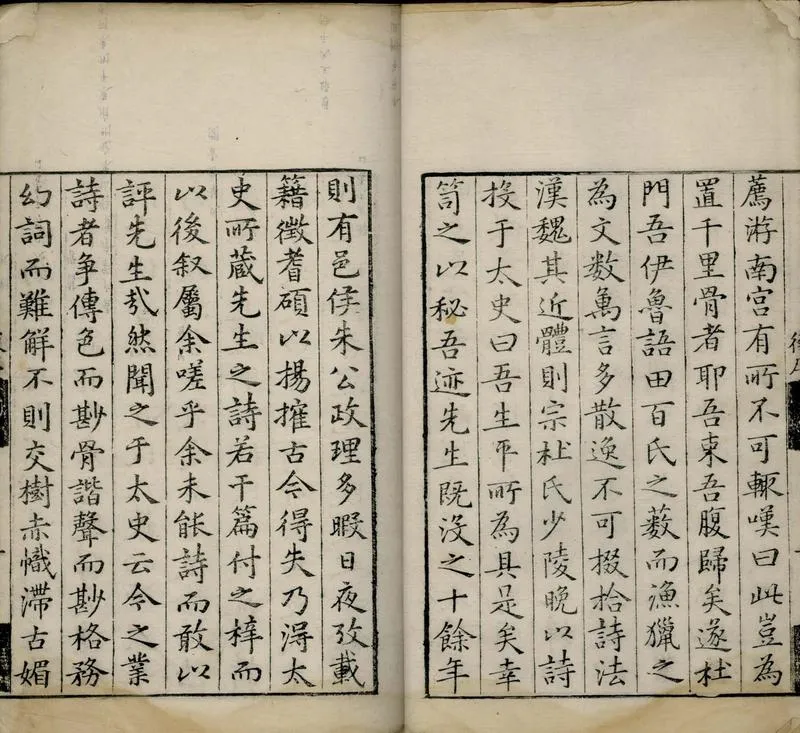 薦游南宮有所不可輒嘆曰此豈為
置千里骨者耶吾束吾腹歸矣遂杜
門吾伊魯語田百氏之藪而漁獵之
為文數萬言多散逸不可掇拾詩法
漢魏其近體則宗杜氏少陵晚以詩
投于太史曰吾生平所為具是矣幸
笥之以秘吾迹先生既沒之十餘年
則有邑侯朱公政理多暇日夜攷載
籍徵耆碩以揚搉古今得失乃淂太
史所藏先生之詩若干篇付之梓而
以後叙屬余嗟乎余未能詩而敢以
評先生哉然聞之于太史云今之業
詩者争傳色而尠骨諧聲而尠格務
幻詞而難解不則交樹赤幟滯古媚